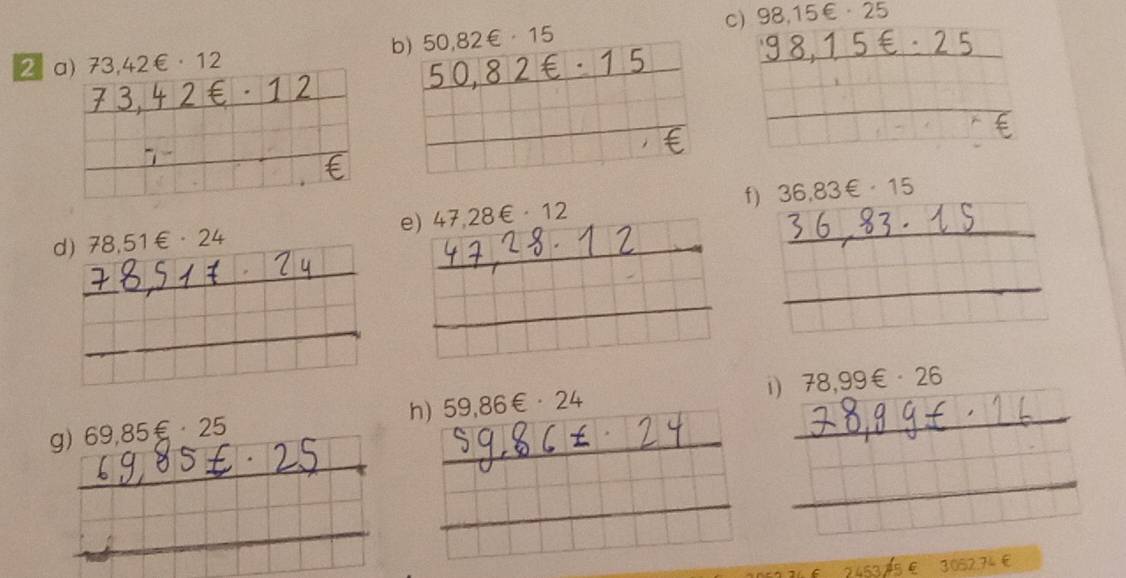 2 a) 73,42€ · 12
73,42€ · 12
€
b) 50,82€ · 15
50,82€ · 15
€
c) 98,15€ · 25
98,15€ · 25
€
d) 78,51€ · 24
78,51€ · 24
e) 47,28€ · 12
47,28 · 12
f) 36,83€ · 15
36,83 · 15
g) 69,85€ · 25
69,85€ · 25
h) 59,86€ · 24
59,86€ · 24
i) 78,99€ · 26
78,99€ · 26
€ 2453,75€ 3052,74€